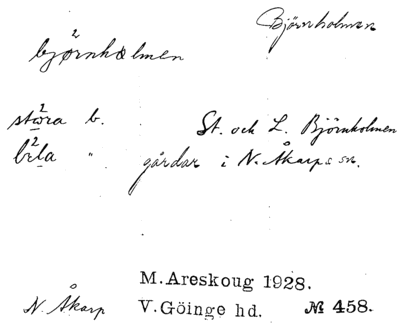 Björnholmen
bjørnholmen
støra b. St. och L. Björnholmen
" gårdar i N. Åkarps sn.
M. Areskoug 1928.
N. Åkarp V. Göinge hd. № 458.